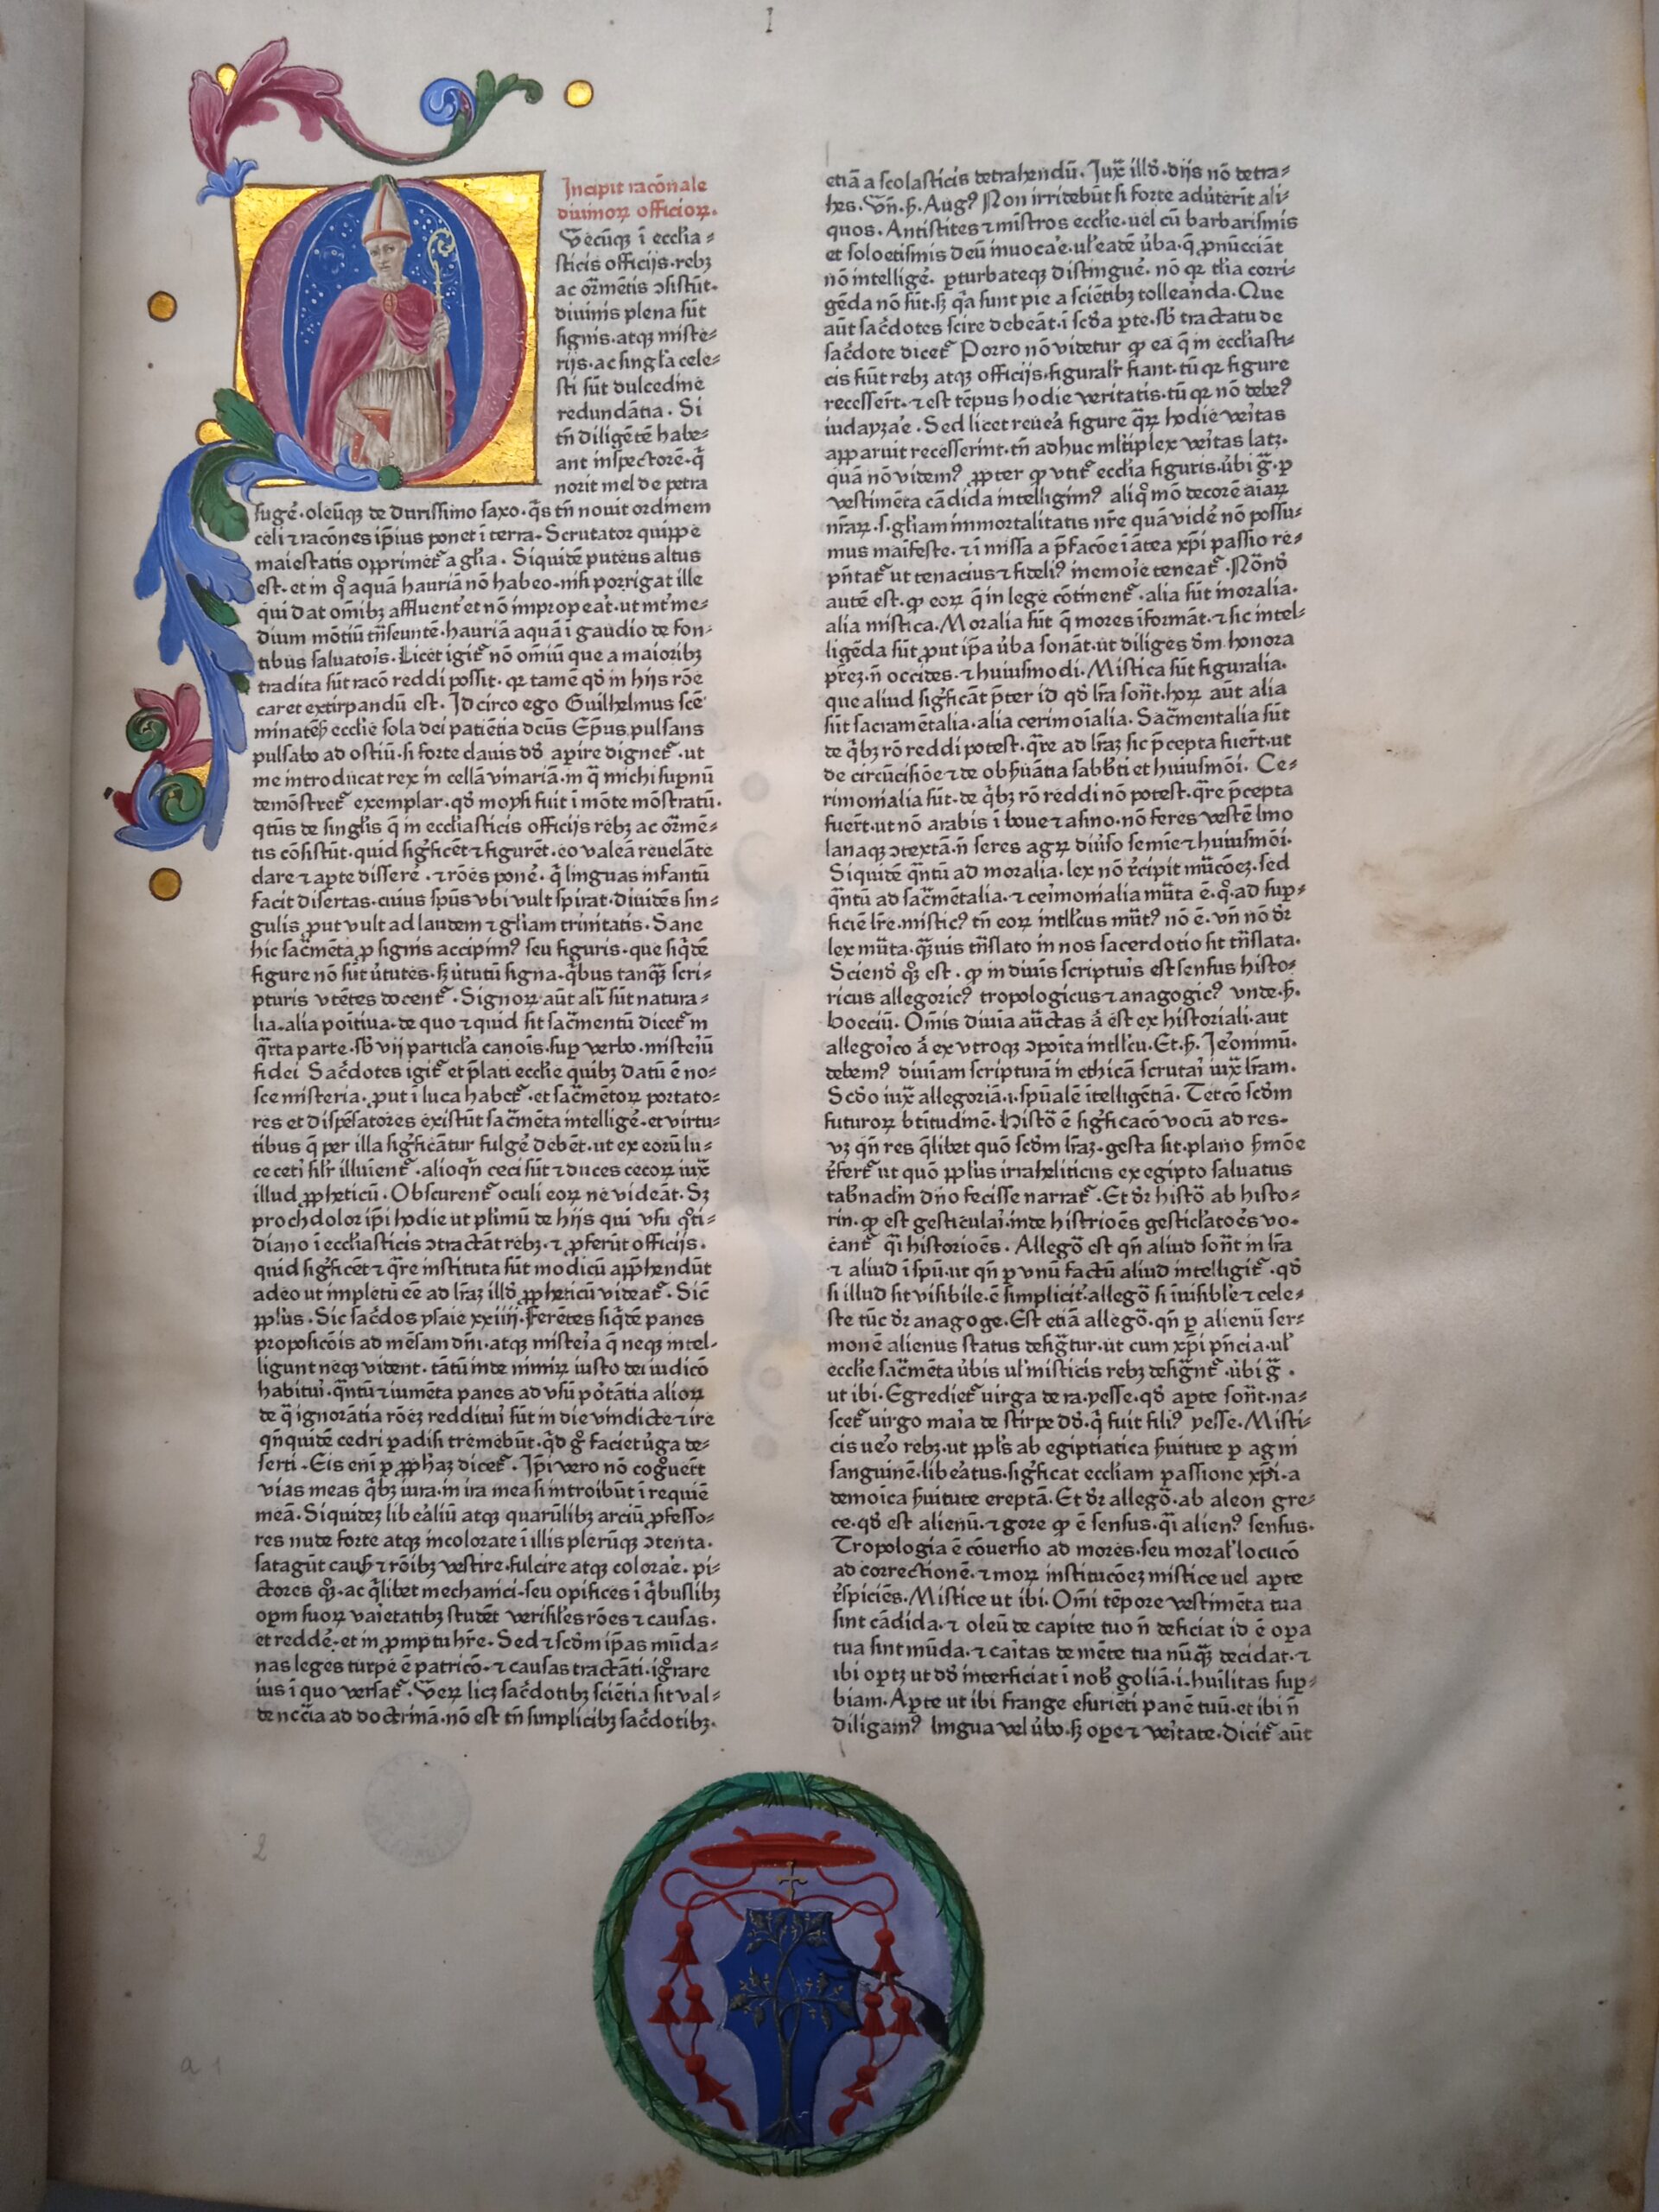 I
Incipit racōnale
diuinoꝝ officioꝝ.
Vecūqꝫ ī ecclia⸗
sticis officijs·rebꝫ
ac orͫmētis ↄsistūt·
diuinis plena sūt
signis·atqꝫ miste⸗
rijs·ac singl'a cele⸗
sti sūt dulcedine
redundātia. Si
tn̄ diligētē habe⸗
ant inspectorē·q̄
norit mel de petra
sugē·oleūqꝫ de durissimo saxo·q̄s tn̄ nouit ordinem
celi ⁊ racōnes ip̄ius ponet ī terra. Scrutator quippe
maiestatis opprimet᷑ a gl'ia. Siquidē puteus altus
est·et in qͦ aquā hauriā nō habeo·nisi porrigat ille
qui dat om̄ibꝫ affluent᷑ et nō improperat·ut
dium mōtiū trāseuntē·hauriā aquā ī gaudio de fon⸗
tibus saluatoris. Licet igit᷑ nō om̄iū que a maioribꝫ
tradita sūt racō reddi possit· qꝛ tamē qd̄ in hijs rōe
caret extirpandū est. Idcirco ego Guilhelmus scē
minateñ ecclīe sola dei patiētia dcūs Ep̄us pulsans
pulsabo ad ostiū·si forte clauis dd̄ aꝑire dignet᷑·ut
me introducat rex in cellā vinariā·in q̄ michi supnū
demōstret᷑ exemplar·qd̄ moysi fuit ī mōte mōstratū·
qtūs de singl'is q̄ in eccl'iasticis officijs rebꝫ ac orͫmē⸗
tis cōsistūt·quid sigͥficēt ⁊ figurēt·eo valeā reuelāte
clare ⁊ aꝑte disserē·⁊ rōes ponē·q̄ linguas infantū
facit disertas·cuius sp̄us vbi vult spirat·diuidēs sin⸗
gulis ꝓut vult ad laudem ⁊ gl'iam trinitatis. Sane
hic sac̄mēta ꝓ signis accipimꝰ seu figuris·que siq̄dē
figure nō sūt v̓tutes·sꝫ v̓tutū signa·q̄bus tanq̄ꝫ scri⸗
pturis vtētes docent᷑. Signoꝝ aūt al'ia sūt natura⸗
lia·alia poītiua·de quo ⁊ quid sit sac̄mentū dicet᷑ in
q̄rta parte·sb̄ vij particl'a canōis·sup verbo·misteriū
fidei Sac̄dotes igit᷑ et p̄lati ecclīe quibꝫ datū ē no⸗
sce misteria·ꝓut i luca habet᷑·et sac̄mētoꝝ portato⸗
res et dispēsatores existūt sac̄mēta intelligē·et virtu⸗
tibus q̄ per illa sigͥficātur fulgē debēt·ut ex eorū lu⸗
ce ceti sil'r illuient᷑·alioqn̄ ceci sūt ⁊ duces cecoꝝ iux̄
illud ꝓpheticū. Obscurent᷑ oculi eoꝝ ne videāt. Sꝫ
proch dolor ip̄i hodie ut pl'imū de hijs qui vsu qͦti⸗
diano ī eccl'iasticis ↄtractāt rebꝫ·⁊ ꝓferūt officijs·
quid sigͥficēt ⁊ q̄re instituta sūt modicū appͣhendūt
adeo ut impletū eē ad lr̄aꝫ illd̄ ꝓpheticū videat᷑. Sic̄
ppl'us. Sic sac̄dos ysaie xxiiij·Ferētes siq̄dē panes
proposicōis ad mēsam dn̄i·atqꝫ misteria q̄ neqꝫ intel⸗
ligunt neqꝫ vident·tātū inde nimiꝝ iusto dei iudicō
habituri·q̄ntū ⁊ iumēta panes ad vsū portātia alioꝝ
de q̄ ignorātia rōeꝫ reddituri sūt in die vindicte ⁊ ire
qn̄quidē cedri ꝑadisi tremebūt·qͥd gͦ faciet v̓ga de⸗
serti. Eis eni ꝑ ꝓphaꝫ dicet᷑. Ip̄i vero nō cogͦuert̄
vias meas q̄bꝫ iura·in ira mea si introibūt ī requiē
meā. Siquideꝫ liberaliū atqꝫ quarūlibꝫ arciū ꝓfesso⸗
res nude forte atqꝫ incolorate ī illis plerūqꝫ ↄtenta·
satagūt causꝭ ⁊ rōibꝫ vestire·fulcire atqꝫ colorare·pi⸗
ctores qꝫ·ac q̄libet mechanici·seu opifices ī q̄buslibꝫ
oꝑm suoꝝ varietatibꝫ studēt verisil'es rōes ⁊ causas·
et reddē·et in ꝓmptu hr̄e. Sed ⁊ scd̄m ip̄as mūda⸗
nas leges turpe ē patricō·⁊ causas tractāti·igͦrare
ius ī quo versat᷑. Veꝝ licꝫ sac̄dotibꝫ sciētia sit val⸗
de ncc̄ia ad doctrinā·nō est tn̄ simplicibꝫ sac̄dotibꝫ·
etiā a scolasticis detrahendū. Jux̄ illd̄·dijs nō detra⸗
hes. Vn̄·ẖ·Augꝰ Non irridebūt si forte aduterīt ali⸗
quos. Antistites ⁊ mīstros ecclīe·uel cū barbarismis
et soloecismis deū inuocare·ul' eadē v̓ba·q̄ ꝓnūcciāt
nō intelligē·ꝑturbateqꝫ distinguē·nō qꝛ t'lia corri⸗
gēda nō sūt·sꝫ q̄a sunt pie a sciētibꝫ tolleranda. Que
aūt sac̄dotes scire debeāt·ī scd̄a ꝑte·sb̄ tractatu de
sac̄dote dicet᷑ Porro nō videtur ꝙ ea q̄ in eccl'iasti⸗
cis fiūt rebꝫ atqꝫ officijs·figuralr̄ fiant·tū qꝛ figure
recessert̄·⁊ est tēpus hodie veritatis·tū qꝛ nō debeꝰ
iudayzare. Sed licet reuera figure q̄ꝝ hodie veritas
apparuit recesserint·tn̄ adhuc ml̄tiplex veritas latꝫ·
quā nō videmꝰ ꝓpter ꝙ vtit᷑ ecclia figuris·v̓bi gͣ·ꝑ
vestimēta cādida intelligimꝰ aliqͦ mō decorē aīaꝝ
nr̄aꝝ·s·gl'iam immortalitatis nr̄e quā vidē nō possu⸗
mus maīfeste·⁊ ī missa a p̄facōe i ātea xp̄i passio re⸗
pn̄tat᷑ ut tenacius ⁊ fideliꝰ memorie teneat᷑. Nōnd̄
autē est·ꝙ eoꝝ q̄ in lege cōtinent᷑·alia sūt moralia·
alia mistica. Moralia sūt q̄ mores īformāt·⁊ sic intel⸗
ligēda sūt ꝓut ip̄a v̓ba sonāt·ut diliges dm̄ honora
pr̄eꝫ·n̄ occides·⁊ huiusmodi. Mistica sūt figuralia·
que aliud sigͥficāt p̄ter id qd̄ lr̄a sonn̄t·hoꝝ aūt alia
sūt sacramētalia·alia cerimoīalia. Sac̄mentalia sūt
de q̄bꝫ rō reddi potest·q̄re ad lr̄aꝫ sic p̄cepta fuert̄·ut
de circūcisiōe ⁊ de obẖuātia sabb̄ti et huiusmōi. Ce⸗
rimonialia sūt·de q̄bꝫ rō reddi nō potest·q̄re p̄cepta
fuert̄·ut nō arabis ī boue ⁊ asino·nō feres vestē lino
lanaqꝫ ↄtextā·n̄ seres agꝝ diūso semīe ⁊ huiusmōi·
Siquidē q̄ntū ad moralia·lex nō r̄cipit mūcōeꝫ·sed
q̄ntū ad sac̄mētalia·⁊ cerimonialia mūta ē·qͦ·ad sup⸗
ficiē lr̄e·misticꝰ tn̄ eoꝝ intll'cus mūtꝰ nō ē·vn̄ nō dr̄
lex mūta·q̄ꝫuis trāslato in nos sacerdotio sit trāslata·
Sciend̄ qͦꝫ est·ꝙ in diuīs scripturis est sensus histo⸗
ricus allegoricꝰ tropologicus ⁊ anagogicꝰ vnde·ẖ·
boeciū. Om̄is diuīa auc̄tas ā est ex historiali·aut
allegorico ā ex vtroqꝫ ↄpoīta intll'cu. Et·ẖ·Jeronimū·
debemꝰ diuīam scripturā in ethicā scrutari iux̄ lr̄am·
Scd̄o iux̄ allegoriā·i·sp̄uāle ītelligētiā. Tercō scd̄m
futuroꝝ btītudinē. Histoͣ ē sigͥficacō vocū ad res·
vꝫ qn̄ res q̄libet quō scd̄m lr̄aꝫ·gesta sit·plano ẖmōe
r̄fert᷑ ut quō ppl'us irraheliticus ex egipto saluatus
tabn̄aclm̄ dn̄o fecisse narrat᷑. Et dr̄ histoͣ ab histo⸗
rin·ꝙ est gesticulari·inde histrioēs gesticl'atoēs vo⸗
cant᷑ q̄i historioēs. Allegoͣ est qn̄ aliud sonn̄t in lr̄a
⁊ aliud ī sp̄u·ut qn̄ ꝑ vnū factū aliud intelligit᷑·qd̄
si illud sit visibile·ē simplicit᷑·allegoͣ si īuisible ⁊ cele⸗
ste tūc dr̄ anagoge. Est etiā allegoͣ·qn̄ ꝑ alienū ser⸗
monē alienus status desigͣtur·ut cum xp̄i pn̄cia·ul'
ecclīe sac̄mēta v̓bis ul' misticis rebꝫ desigͣnt᷑·v̓bi gͣ·
ut ibi·Egrediet᷑ uirga de ra·yesse·qd̄ aꝑte sonn̄t·na⸗
scet᷑ uirgo maria de stirpe dd̄·q̄ fuit filiꝰ yesse. Misti⸗
cis uero rebꝫ·ut ppl's ab egiptiatica ẖuitute ꝑ agni
sanguinē·liberatus·sigͥficat eccliam passione xp̄i·a
demoīca ẖuitute ereptā. Et dr̄ allegoͣ·ab aleon gre⸗
ce·qd̄ est alienū·⁊ gore ꝙ ē sensus·q̄i alienꝰ sensus·
Tropologia ē cōuersio ad mores·seu moral' locucō
ad correctionē·⁊ moꝝ institucōeꝫ mistice uel aꝑte
r̄spiciēs. Mistice ut ibi. Om̄i tēpore vestimēta tua
sint cādida·⁊ oleū de capite tuo n̄ deficiat id ē oꝑa
tua sint mūda·⁊ caritas de mēte tua nūq̄ꝫ decidat·⁊
ibi oꝑtꝫ ut dd̄ interficiat ī nob̄ goliā·i·huīlitas sup⸗
biam. Aꝑte ut ibi frange esuriēti panē tuū·et ibi n̄
diligamꝰ lingua vel v̓bo·sꝫ oꝑe ⁊ veritate·Dicit᷑ aūt
2
a 1